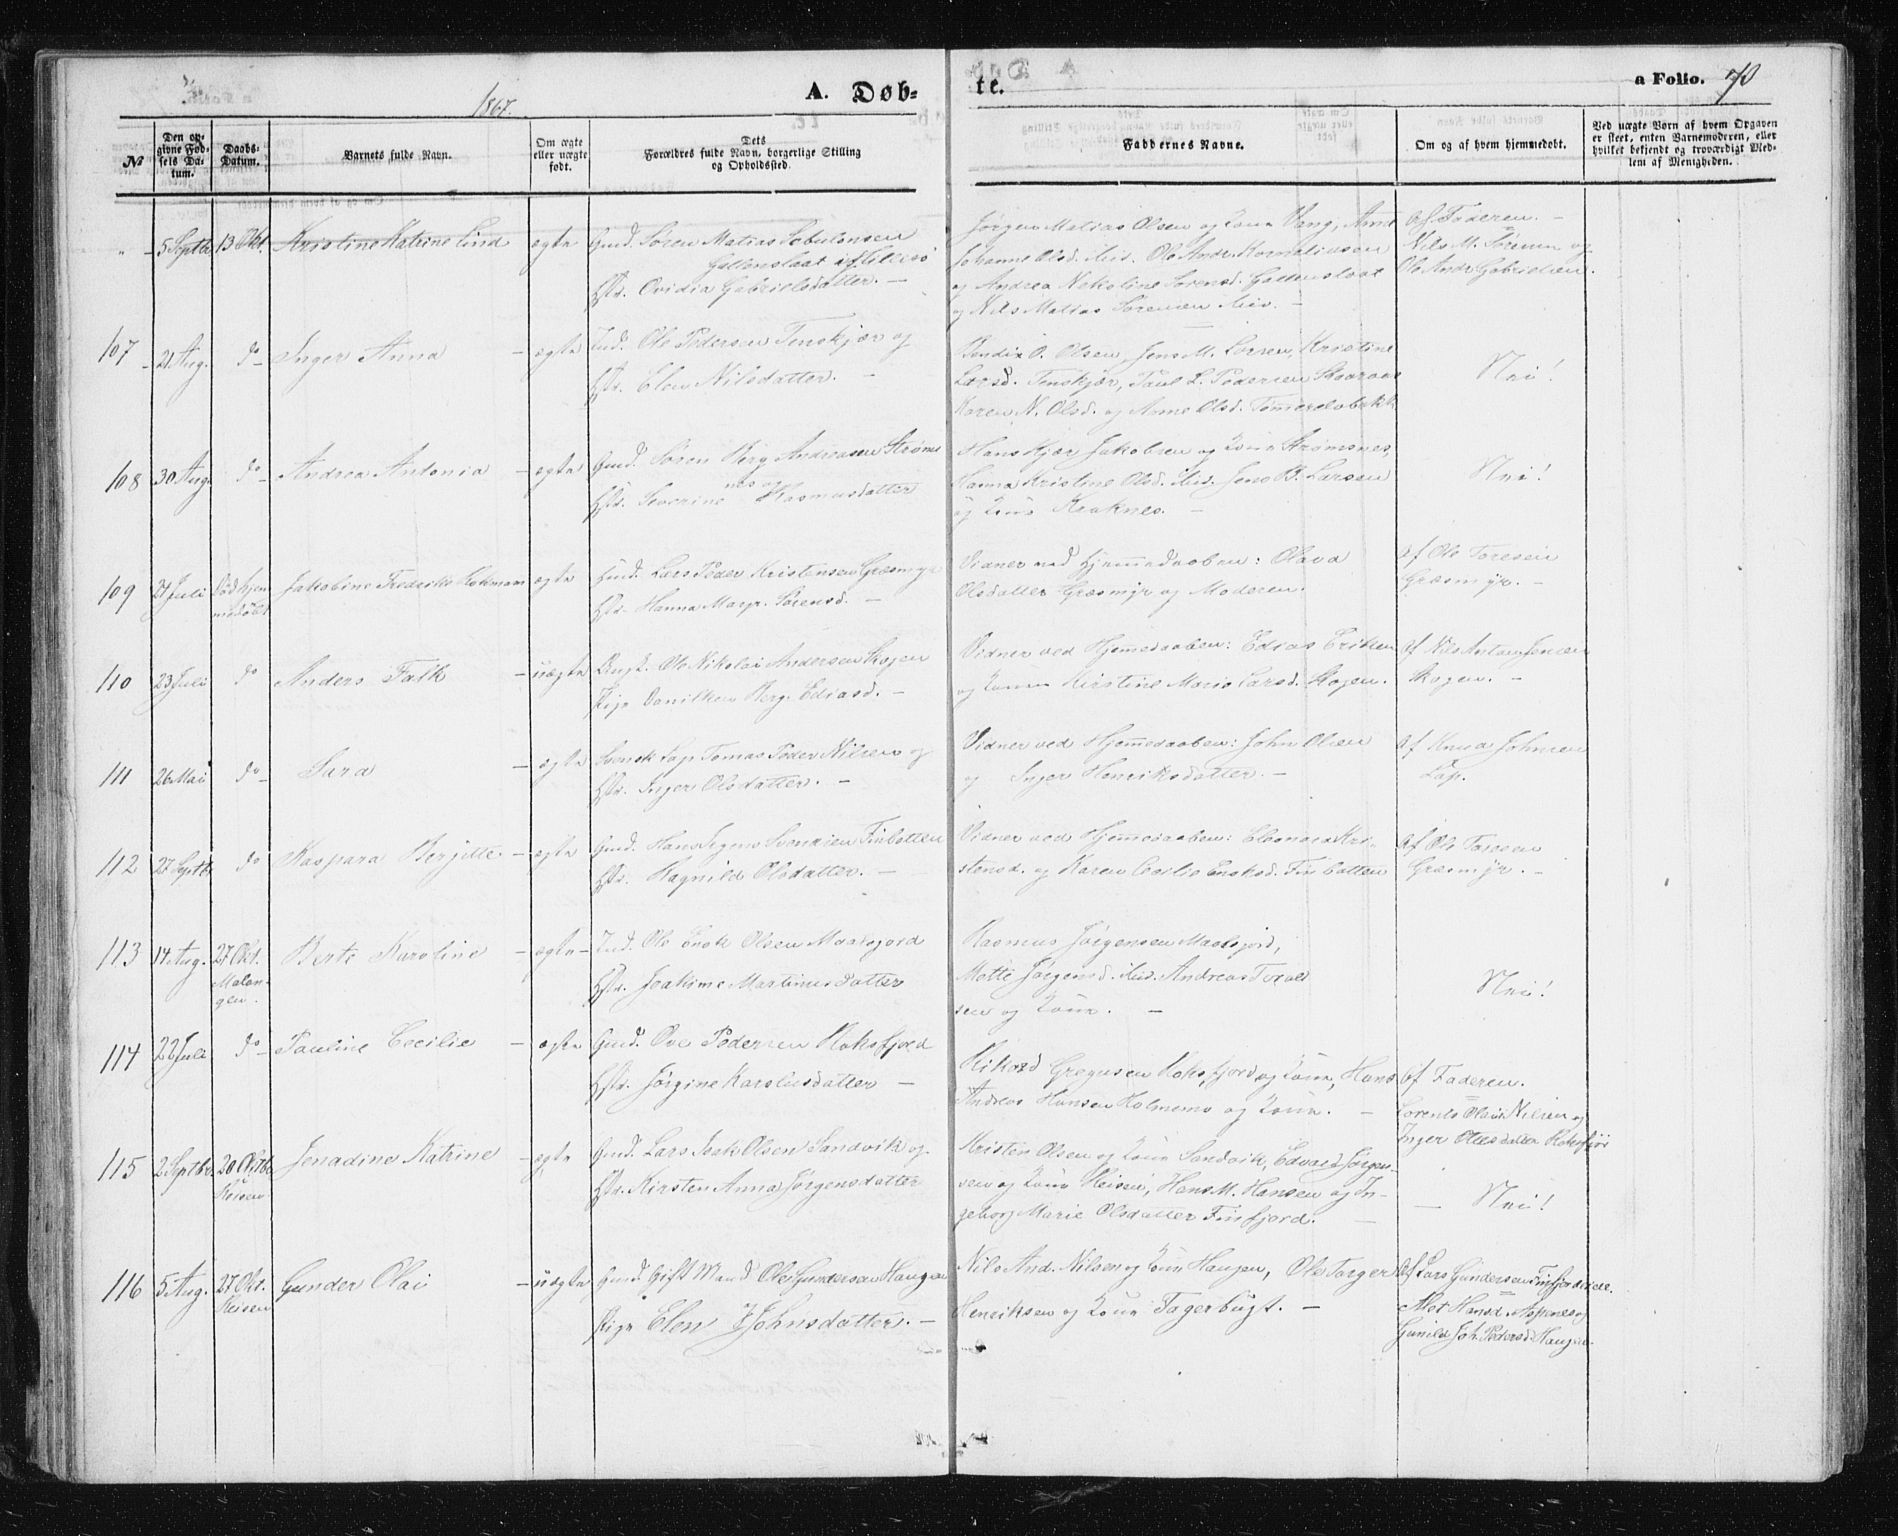 1867.
A. Døb-
te.
a Folio. 70
№
Den op-
givne Fød-
sels Da-
tum.
Daabs-
Datum.
Barnets fulde Navn.
Om ægte
eller uægte
født.
Dets
Forældres fulde Navn, borgerlige Stilling
og Opholdssted.
Faddernes Navne.
Om og af hvem hjemmedøbt.
Ved uægte Børn af hvem Opgaven
er skeet, enten Barnemoderen, eller
hvilket bekjendt og troværdigt Med-
lem af Menigheden.
" 5 Septbr 13 Okt. Kristine Katrine Lind ægte Gmd. Sören Matias Sebulonsen
Hstr. Ovidia Gabrielsdatter. —
Jørgen Matias Olsen og Kone Vang, Anne
Johanne Olsd. ibid. Ole Andr. Korneliussen
og Andrea Nekoline Sørensd.
og Nils Matias Sørensen ibid. —
Af Faderen. —
Nils M. Sørensen og
Ole Andr. Gabrielsen.
107 21 Aug. do Inger Anna — ægte Ind. Ole Pedersen Tenskjær og
Hstr. Elen Nilsdatter. —
Bendix O. Olsen, Jens M. Larsen, Kristine
Larsd. Tenskjær, Paul L. Pedersen
Karen N. Olsd. og Anne Olsd.
Nei!
108 30 Aug. do Andrea Antonia — ægte Gmd. Sören Berg Andreasen Strøms
nes og
Hstr. Severine Rasmusdatter
Hans Kjær Jakobsen og Kone Strømsnes,
Hanna Kristine Olsd. ibid. Jens B. Larsen
og Kone Kraknes. —
Nei!
109 27 Juli Død hjem
medøbt Jakobine Fredrikke ægte Gmd. Lars Peder Kristensen Græsmyr
Hstr. Hanna Margr. Sørensd. —
Vidner ved Hjemmedaaben: Olava
Olsdatter Græsmyr og Moderen.
Af Ole Toresen
Græsmyr. —
110 23 Juli do Anders Falk — uægte Ungk. Ole Nikolai Andersen Skogen
Pige Danilken Berg. Ediasd. —
Vidner ved Hjemedaaben: Edias Eriksen
og Kone Kirstine Marie Larsd. Skogen.
Af Nils Antон Jensen
Skogen. —
111 26 Mai do Sara — ægte Svensk Lap Tomas Peder Nilsen og
Hstr. Inger Olsdatter. —
Vidner ved Hjemedaaben: John Olsen
og Inger Henriksdatter. —
Af Knud Johnsen
Lap.
112 27 Septbr do Kaspara Berjitte — ægte Gmd. Hans Sivertsen Finbotten
Hstr. Ragnild Olsdatter. —
Vidner ved Hjemmedaaben: Eleonora Kri-
stensd. og Karen Cecilie Enoksd. Finbotten
Af Ole Toresen
Græsmyr. —
113 14 Aug. 27 Okt.
Malan-
gen. Berte Karoline — ægte Ind. Ole Enok Olsen Maalsfjord
Hstr. Joakime Martinusdatter
Rasmus Jørgensen Maalsfjord,
Mette Jørgensd. ibid. Andreas Torald
sen og Kone. —
Nei!
114 22 Juli do Pauline Cecilie — ægte Gmd. Ove Pedersen Roksfjord
Hstr. Jørgine Karolusdatter —
Rikard Gregusen Roksfjord og Kone, Hans
Andreas Hansen Holmemo og Kone. —
Af Faderen.
Lorents Olaus Nilsen og
Inger Olesdatter Roksfjor
115 2 Septbr. 20 Oktbr
Reisen Jenadine Katrine — ægte Gmd. Lars Isak Olsen Sandvik og
Hstr. Kirsten Anna Jørgensdatter
Kristen Olsen og Kone Sandvik, Edvard Jørgen-
sen og Kone Reisen, Hans M. Hansen og In-
geborg Marie Olsdatter Finfjord. —
— Nei!
116 5 Aug. 27 Okt.
Reisen Gunder Olai — uægte Gmd. Gift Mand Ole Gundersen Haugen
Pige Elen J. Johnsdatter. —
Nils And. Nilsen og Kone Haugen, Ole Torger
Henriksen og Kone Fagerbugt. —
Af Lars Gundersen Finfjordeidet.
Alet Hansd. Aspenes og
Gunild Joh. Pedersd. Haugen.